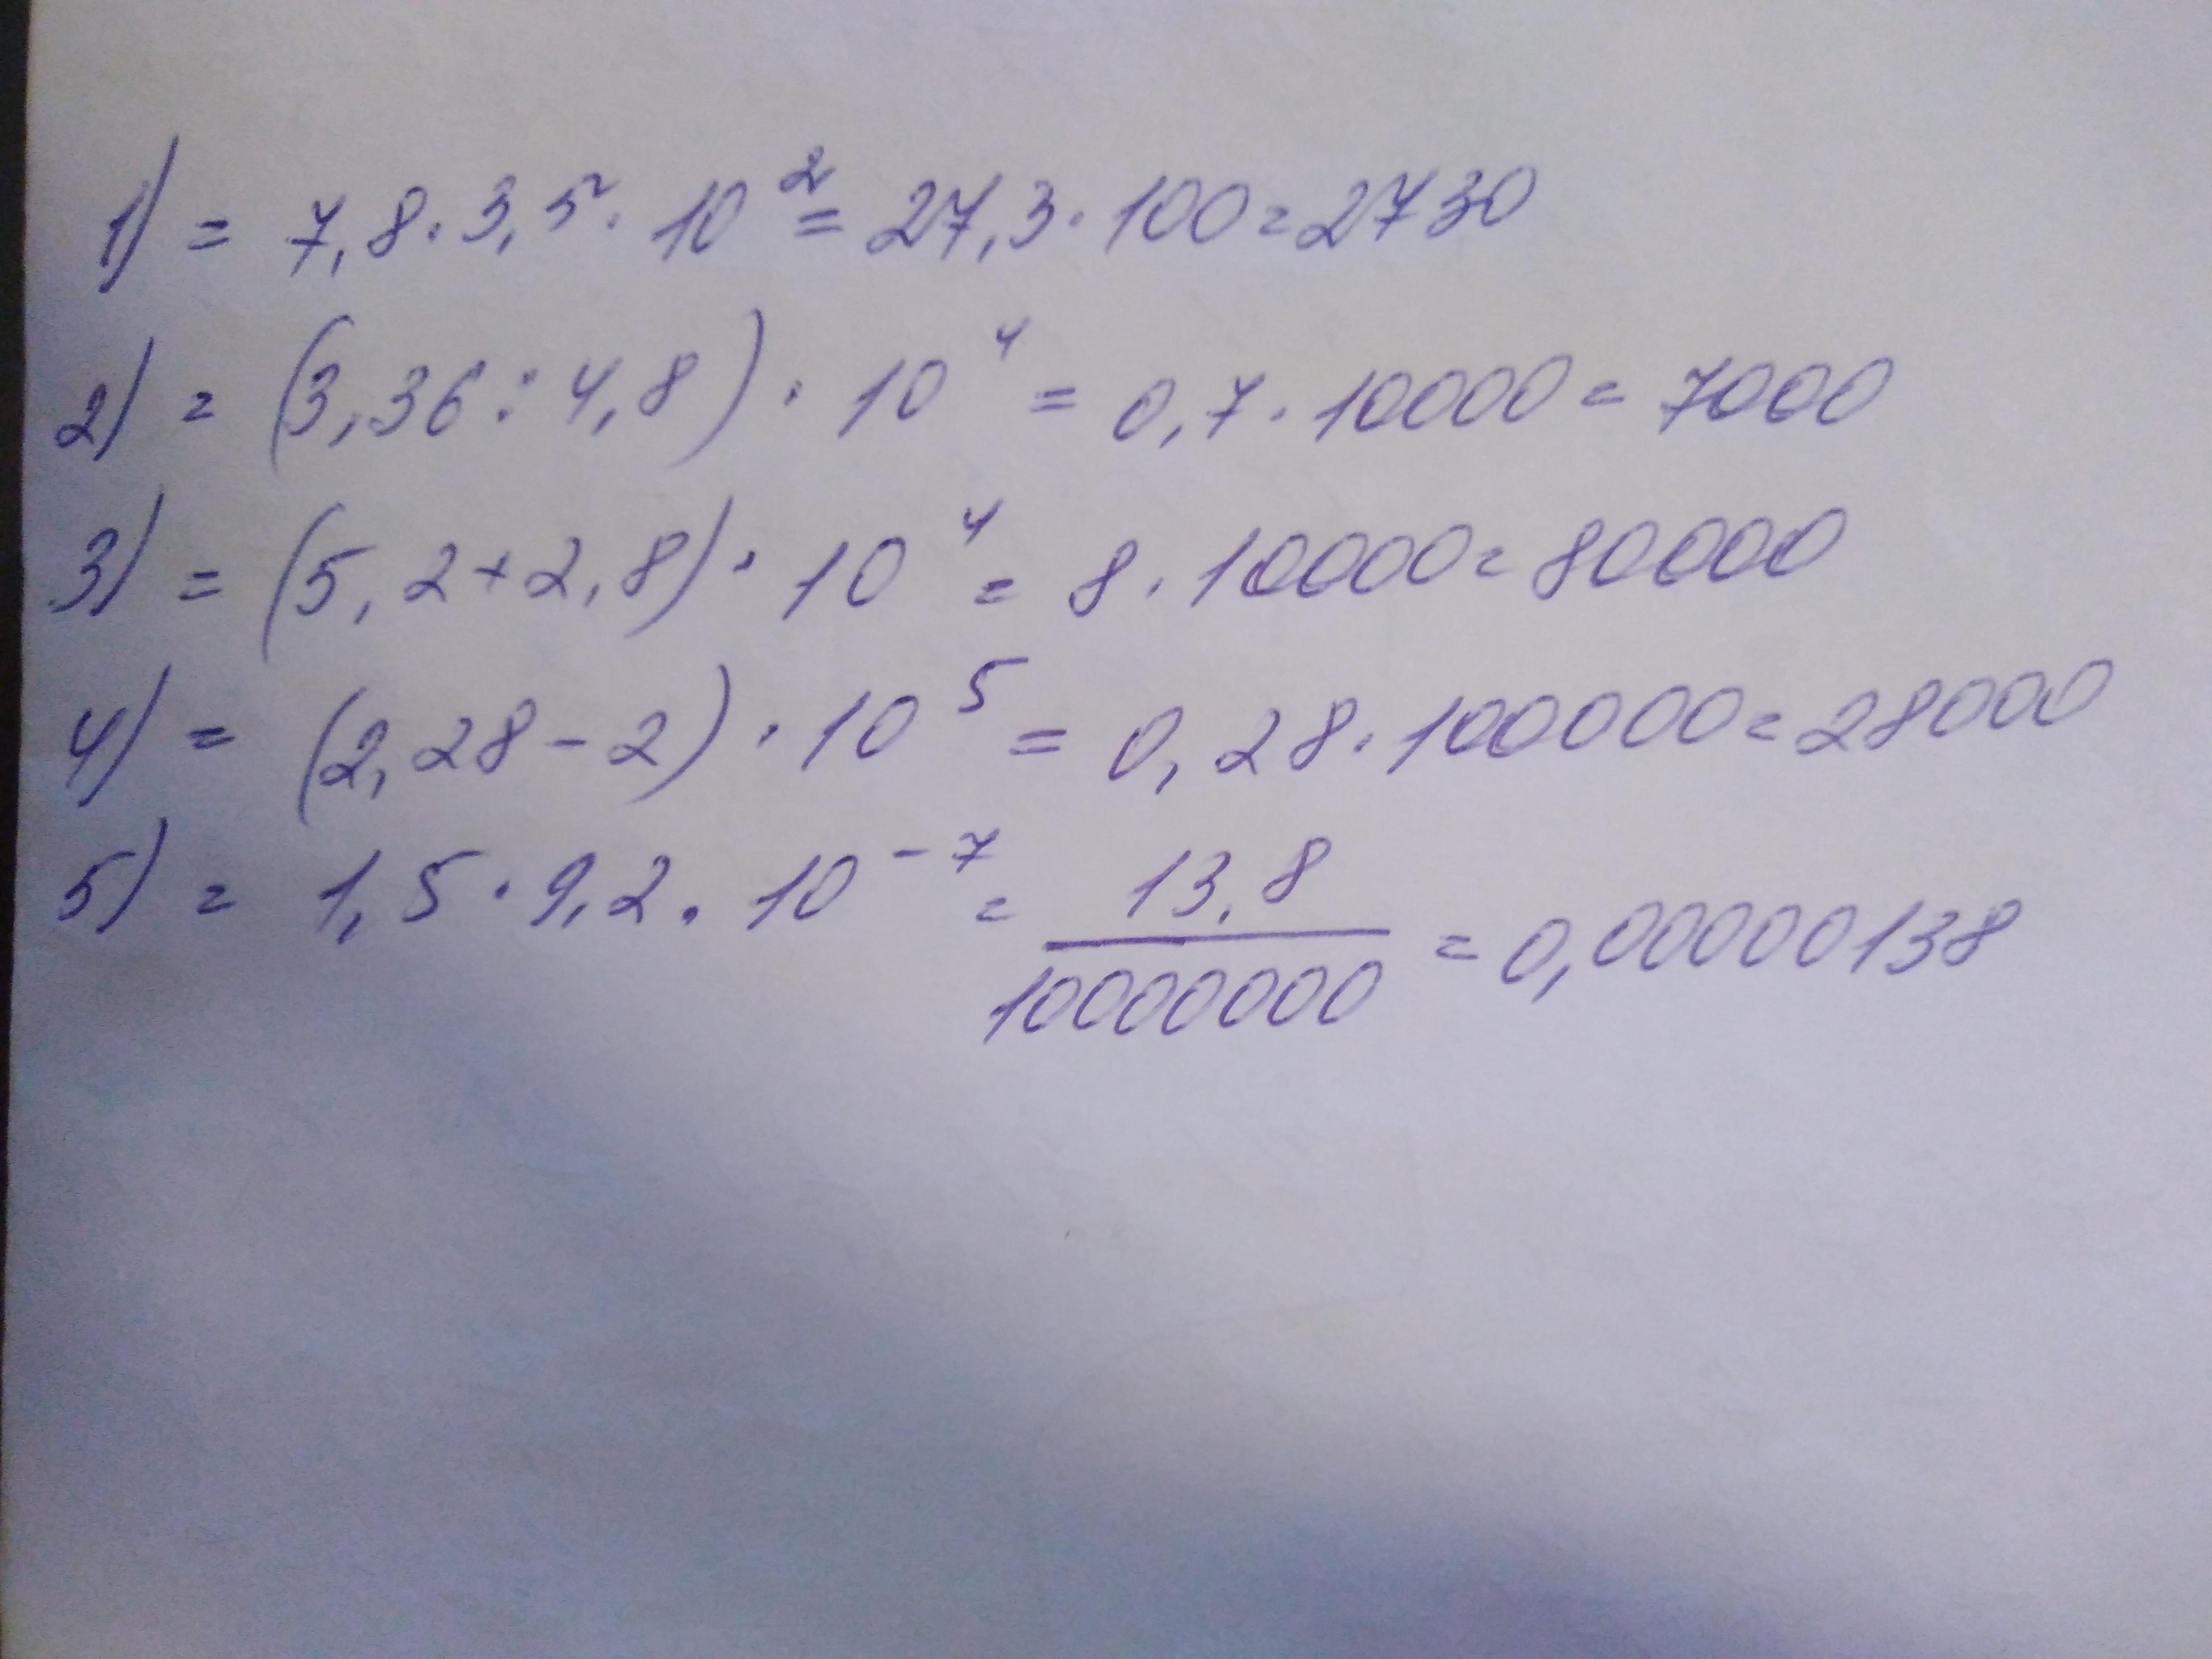 1) = 7,8 · 3,5 · 10² = 27,3 · 100 = 2730
2) = (3,36 : 4,8) · 10⁴ = 0,7 · 10000 = 7000
3) = (5,2 + 2,8) · 10⁴ = 8 · 10000 = 80000
4) = (2,28 - 2) · 10⁵ = 0,28 · 100000 = 28000
5) = 1,5 · 9,2 · 10⁻⁷ = 13,8 / 10000000 = 0,00000138